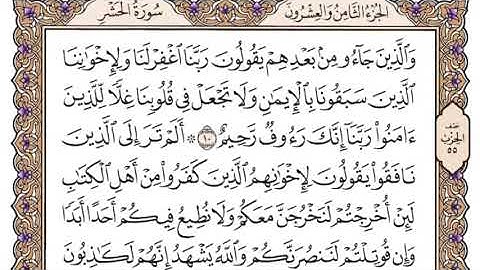 الجزء الثامن والعشرون
سورة الحشر
وَٱلَّذِينَ جَآءُو مِنۢ بَعْدِهِمْ يَقُولُونَ رَبَّنَا ٱغْفِرْ لَنَا وَلِإِخْوَٰنِنَا
ٱلَّذِينَ سَبَقُونَا بِٱلْإِيمَٰنِ وَلَا تَجْعَلْ فِى قُلُوبِنَا غِلًّا لِّلَّذِينَ
ءَامَنُوا۟ رَبَّنَآ إِنَّكَ رَءُوفٌ رَّحِيمٌ ١٠ ۞ أَلَمْ تَرَ إِلَى ٱلَّذِينَ
نَافَقُوا۟ يَقُولُونَ لِإِخْوَٰنِهِمُ ٱلَّذِينَ كَفَرُوا۟ مِنْ أَهْلِ ٱلْكِتَٰبِ
لَئِنْ أُخْرِجْتُمْ لَنَخْرُجَنَّ مَعَكُمْ وَلَا نُطِيعُ فِيكُمْ أَحَدًا أَبَدًا
وَإِن قُوتِلْتُمْ لَنَنصُرَنَّكُمْ وَٱللَّهُ يَشْهَدُ إِنَّهُمْ لَكَٰذِبُونَ
نصف
الحزب
٥٥